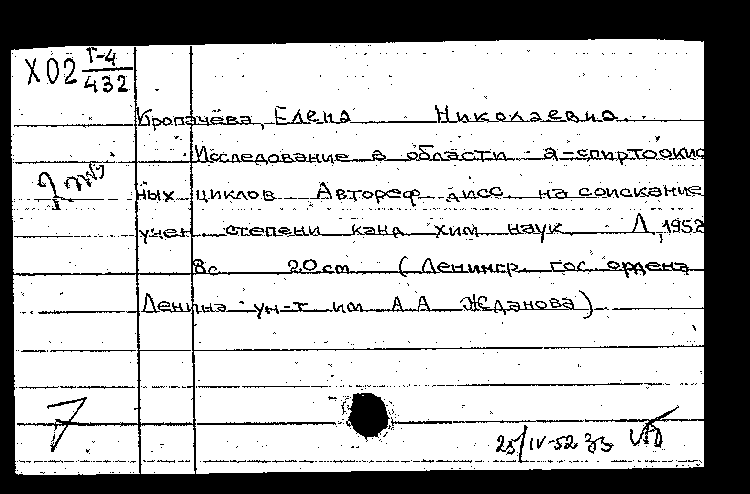 Х02 Г-4/432
Кропачёва, Елена Николаевна.
Исследование в области а-спиртоокис
ных циклов Автореф дисс. на соискание
учен степени канд хим наук Л, 1952
8с 20cm (Ленингр. гос. ордена
Ленина ун-т им А А Жданова)
7
25/IV-52